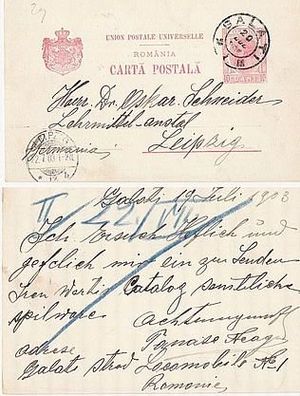 UNION POSTALE UNIVERSELLE
ROMÂNIA
CARTĂ POSTALĂ
GALATI
20
Herrn Dr. Oskar Schneider
Lehrmittel-anstal
Leipzig
Germania
LEIPZIG
Galatz 19 Juli 1903
II / 22/VII
Ich Ersuch Höflich und
gefclich mir ein zu Senden
Iren Werti Catalog samtliche
apilware
Achtungsvoll
Tanase Neagu
adrese
Galats strad Locomobile No 1
Romanie